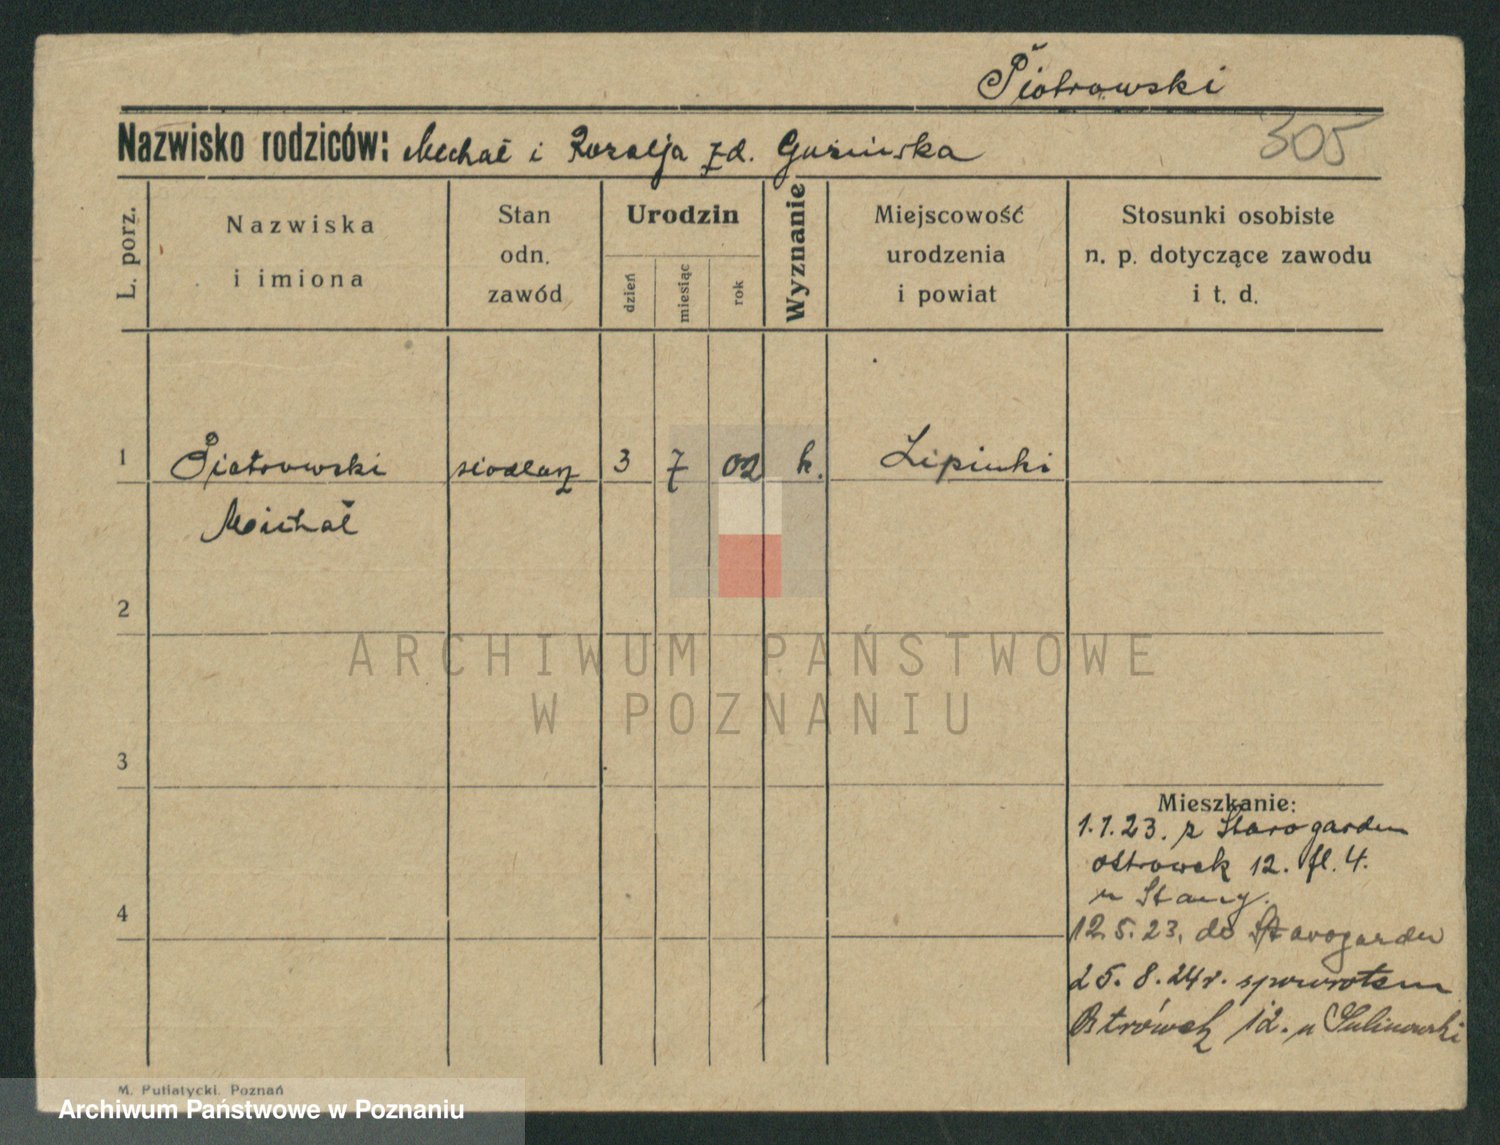 Piotrowski
Nazwisko rodziców: Michał i Rozalja zd.
305
L. porz.
Nazwiska
i imiona
Stan
odn.
zawód
Urodzin
dzień
miesiąc
rok
Wyznanie
Miejscowość
urodzenia
i powiat
Stosunki osobiste
n. p. dotyczące zawodu
i t. d.
1 Piotrowski siodlarz 3 7 02 k. Lipinki
Michał
2
ARCHIWUM PAŃSTWOWE
W POZNANIU
3
Mieszkanie:
1.1.23. z Starogardu
Ostrowek 12. fl. 4.
u
4
12.5.23. do Starogardu
25.8.24r. spowrotem
Ostrówek 12. u
M. Putiatycki. Poznań
Archiwum Państwowe w Poznaniu